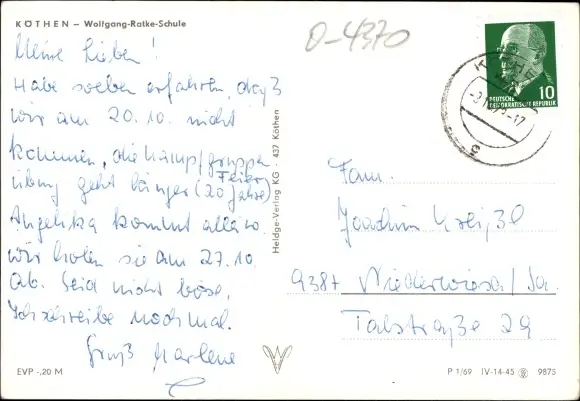 KÖTHEN – Wolfgang-Ratke-Schule
0-4370
Meine Lieben!
Habe soeben erfahren, daß
wir am 20.10. nicht
kommen, die Kampfgruppen
übung geht länger (20 Jahre)
Feiern
Angelika kommt allein.
wir holen sie am 27.10.
ab. Seid nicht böse,
Ich schreibe nochmal.
Gruß Marlene
EVP -,20 M
Heldge-Verlag KG · 437 Köthen
10
DEUTSCHE
DEMOKRATISCHE REPUBLIK
Fam.
Joachim
9387 Niederwiesa/Sa.
Talstraße 29
P 1/69 IV-14-45 9875